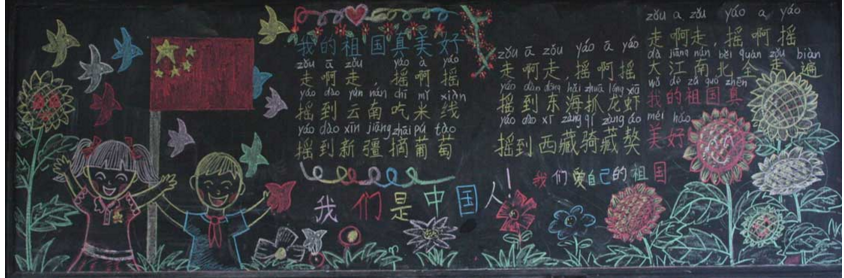 我的祖国真美好
zǒu a zǒu yáo a yáo
走啊走，摇啊摇
yáo dào yún nán chī mǐ xiàn
摇到云南吃米线
yáo dào xīn jiāng zhāi pú táo
摇到新疆摘葡萄
我们是中国人！
zǒu ā zǒu yáo ā yáo
走啊走，摇啊摇
yáo dào dōng hǎi zhuā lóng xiā
摇到东海抓龙虾
摇到西藏骑藏獒
我们爱自己的祖国
zǒu a zǒu yáo a yáo
走啊走，摇啊摇
dà jiāng nán běi quán zǒu biàn
大江南北全走遍
wǒ dí zǔ guó zhēn
我的祖国真
měi hǎo
美好